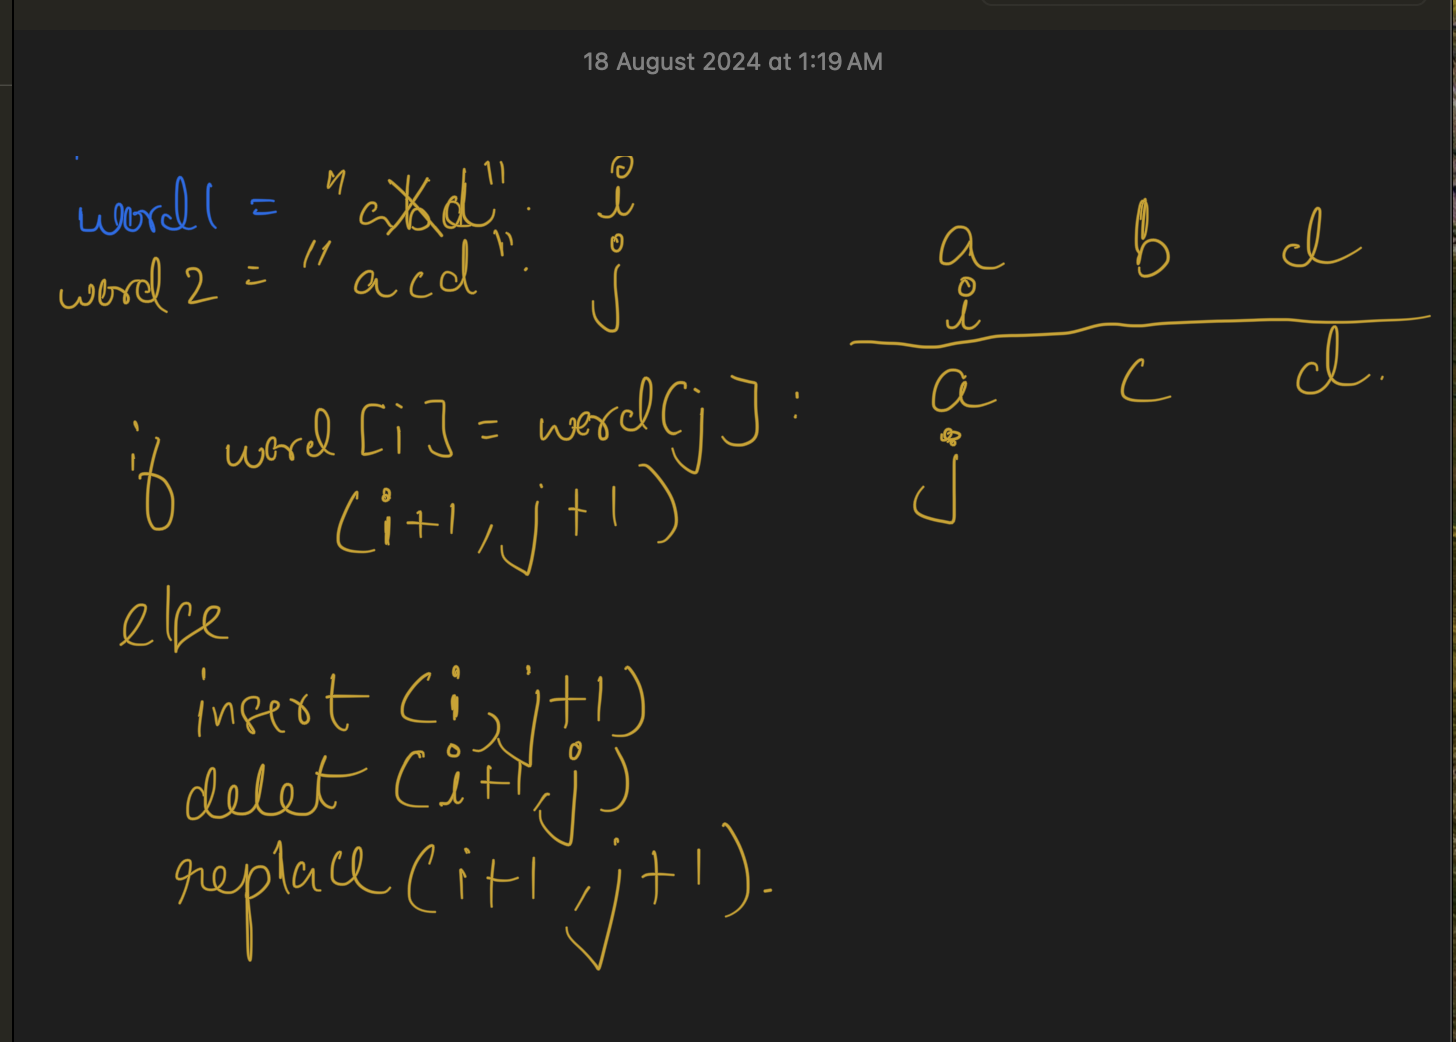 18 August 2024 at 1:19 AM
word1 = "abd". i
word2 = "acd". j
if word[i] = word[j]:
(i+1, j+1)
else
insert (i, j+1)
delet (i+1, j)
replace (i+1, j+1).
a b d
i
a c d.
j